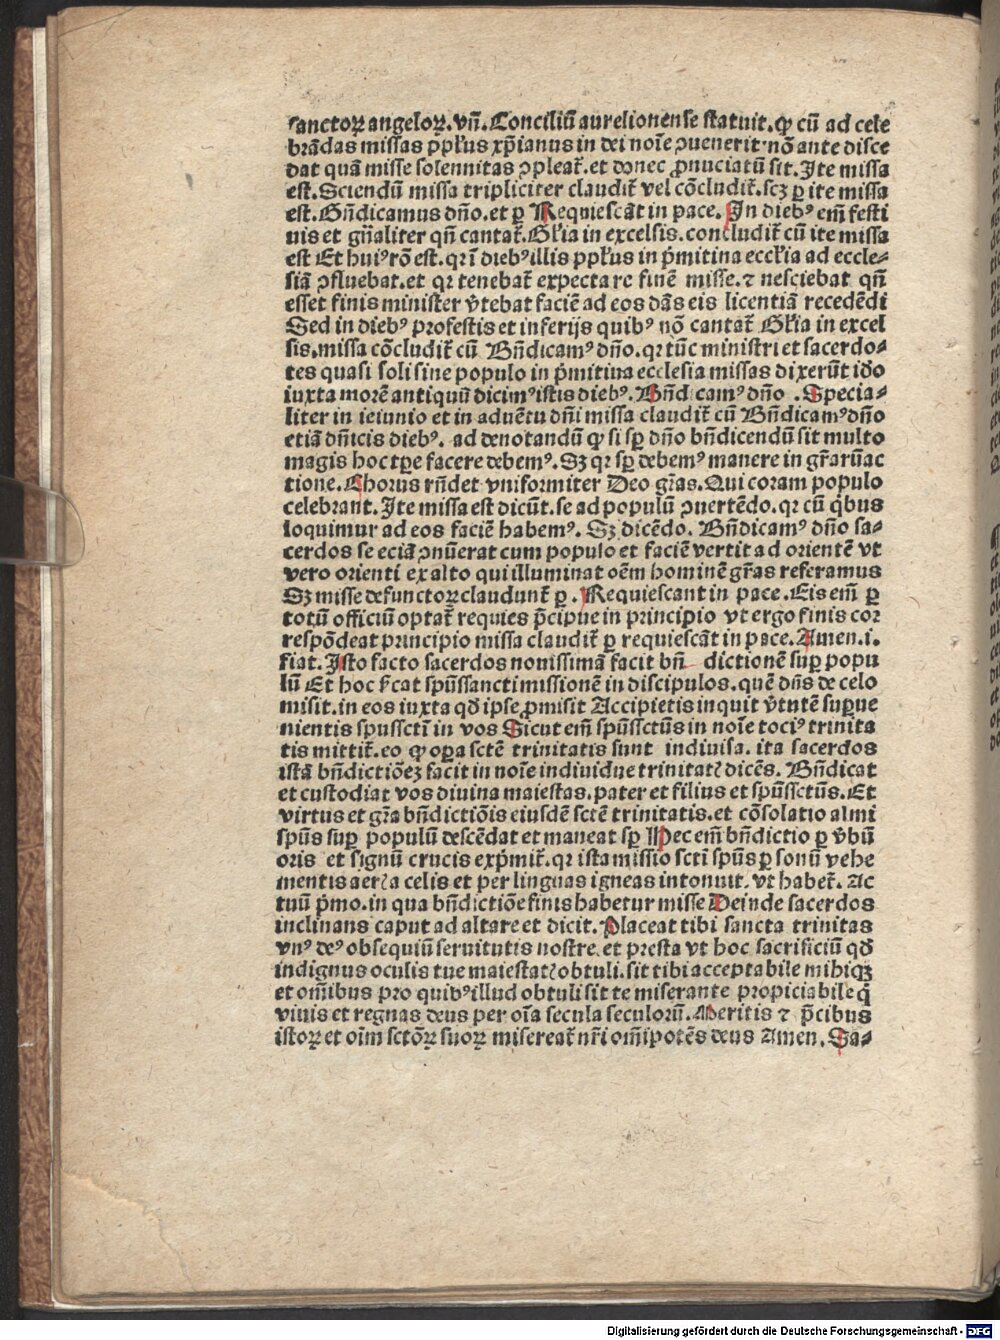 sanctoꝝ angeloꝝ. vñ. Conciliū aurelionense statuit. ꝙ cū ad cele
brādas missas ppl'us xp̄ianus in dei noīe ꝯuenerit· nō ante disce
dat quā misse solennitas ꝯpleat̄. et donec ꝓnuciatū sit. Ite missa
est. Sciendū missa tripliciter claudit̄ vel cōcludit̄. scꝫ ꝑ ite missa
est. Bn̄dicamus dn̄o. et ꝑ Requiescāt in pace. In diebꝰ em̄ festi
uis et gn̄aliter qn̄ cantat̄. Gl'ia in excelsis. concludit̄ cū ite missa
est Et huiꝰ rō est. qr ī diebꝰ illis ppl'us in p̄mitina eccl'ia ad eccle⸗
siā ꝯfluebat. et qr tenebat̄ expectare finē misse. ⁊ nesciebat qn̄
esset finis minister v̄tebat faciē ad eos dās eis licentiā recedēdi
Sed in diebꝰ profestis et in ferijs quibꝰ nō cantat̄ Gl'ia in excel
sis. missa cōcludit̄ cū Bn̄dicamꝰ dn̄o. qr tūc ministri et sacerdo⸗
tes quasi soli sine populo in p̄mitiua ecclesia missas dixerūt id̄o
iuxta morē antiquū dicimꝰ istis diebꝰ. Bn̄d camꝰ dn̄o . Specia⸗
liter in ieiunio et in aduētu dn̄i missa claudit̄ cū Bn̄dicamꝰ dn̄o
etiā dn̄icis diebꝰ. ad denotandū ꝙ si sꝑ dn̄o bn̄dicendū sit multo
magis hoc tꝑe facere debemꝰ. Sꝫ qr sꝑ debemꝰ manere in gr̄arū ac
tione. Chorus rn̄det vniformiter Deo gr̄as. Qui coram populo
celebrant. Ite missa est dicūt. se ad populū ꝯuertēdo. qr cū q̇bus
loquimur ad eos faciē habemꝰ. Sꝫ dicēdo. Bn̄dicamꝰ dn̄o sa⸗
cerdos se eciā ꝯnūerat cum populo et faciē vertit ad orientē vt
vero orienti ex alto qui illuminat oēm hominē gr̄as referamus
Sꝫ misse defunctoꝝ claudunt̄ ꝑ . Requiescant in pace. Eis em̄ ꝑ
totū officiū optat̄ requies p̄cipue in principio vt ergo finis cor
respōdeat principio missa claudit̄ ꝑ requiescāt in pace. Amen. i.
fiat. Isto facto sacerdos nouissimā facit bn̄ dictionē suꝑ popu
lū Et hoc s̄icat spūssancti missionē in discipulos. quē dn̄s de celo
misit. in eos iuxta qd̄ ipse ꝓmisit Accipietis inquit v̄tutē suꝑue
nientis spussctī in vos Sicut em̄ spūssctūs in noīe tociꝰ trinita
tis mittit̄. eo ꝙ oꝑa sctē trinitatis sunt indiuisa. ita sacerdos
istā bn̄dictiōeꝫ facit in noīe indiuidue trinitatꝭ dicēs. Bn̄dicat
et custodiat vos diuina maiestas. pater et filius et spūssctūs. Et
virtus et gr̄a bn̄dictiōis eiusdē sctē trinitatis. et cōsolatio almi
spūs suꝑ populū descēdat et maneat sꝑ Hec em̄ bn̄dictio ꝑ v̄bū
oris et signū crucis exp̄mit̄. qr ista missio sctī spūs ꝑ sonū vehe
mentis aerꝭ a celis et per linguas igneas intonuit. vt habet̄. Ac
tuū p̄mo. in qua bn̄dictiōe finis habetur misse Deinde sacerdos
inclinans caput ad altare et dicit. Placeat tibi sancta trinitas
vnꝰ deꝰ obsequiū seruitutis nostre. et presta vt hoc sacrificiū qd̄
indignus oculis tue maiestatꝭ obtuli. sit tibi acceptabile mihiqꝫ
et om̄ibus pro quibꝰ illud obtuli sit te miserante propiciabile q̇
viuis et regnas deus per oīa secula seculorū. Meritis ⁊ p̄cibus
istoꝝ et oīm sctōꝝ suoꝝ misereat̄ nr̄i om̄ipotēs deus Amen. Sa⸗
Digitalisierung gefördert durch die Deutsche Forschungsgemeinschaft - DFG